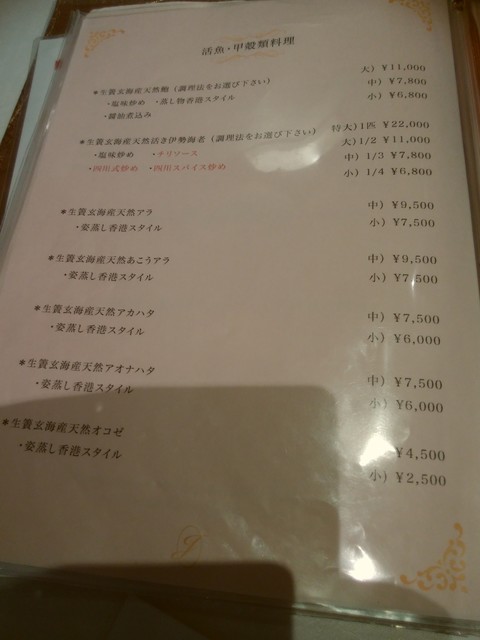 活魚・甲殻類料理
＊生簀玄海産天然鮑（調理法をお選び下さい） 大）￥11,000
・塩味炒め ・蒸し物香港スタイル 中）￥7,800
・醤油煮込み 小）￥6,800
＊生簀玄海産天然活き伊勢海老（調理法をお選び下さい） 特大）1匹 ￥22,000
・塩味炒め ・チリソース 大）1/2 ￥11,000
・四川式炒め ・四川スパイス炒め 中）1/3 ￥7,800
小）1/4 ￥6,800
＊生簀玄海産天然アラ 中）￥9,500
・姿蒸し香港スタイル 小）￥7,500
＊生簀玄海産天然あこうアラ 中）￥9,500
・姿蒸し香港スタイル 小）￥7,500
＊生簀玄海産天然アカハタ 中）￥7,500
・姿蒸し香港スタイル 小）￥6,000
＊生簀玄海産天然アオナハタ 中）￥7,500
・姿蒸し香港スタイル 小）￥6,000
＊生簀玄海産天然オコゼ ￥4,500
・姿蒸し香港スタイル 小）￥2,500